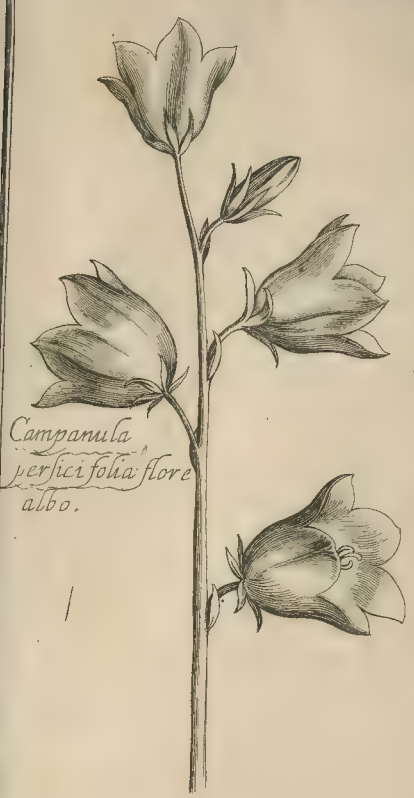 Campanula
persicifolia flore
albo.